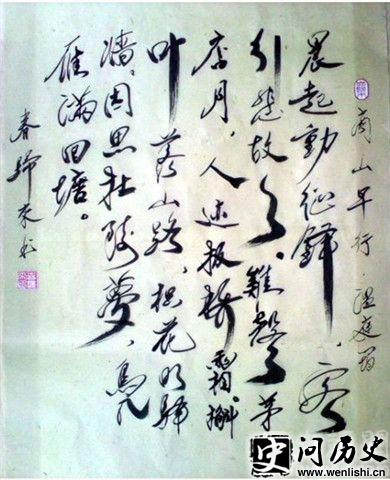 商山早行 温庭筠
晨起動征鐸,客
行悲故乡,雞聲茅
店月,人迹板橋霜。槲
叶落山路,枳花明驛
墙。因思杜陵夢,鳧
雁滿回塘。
问历史
www.wenlishi.cn